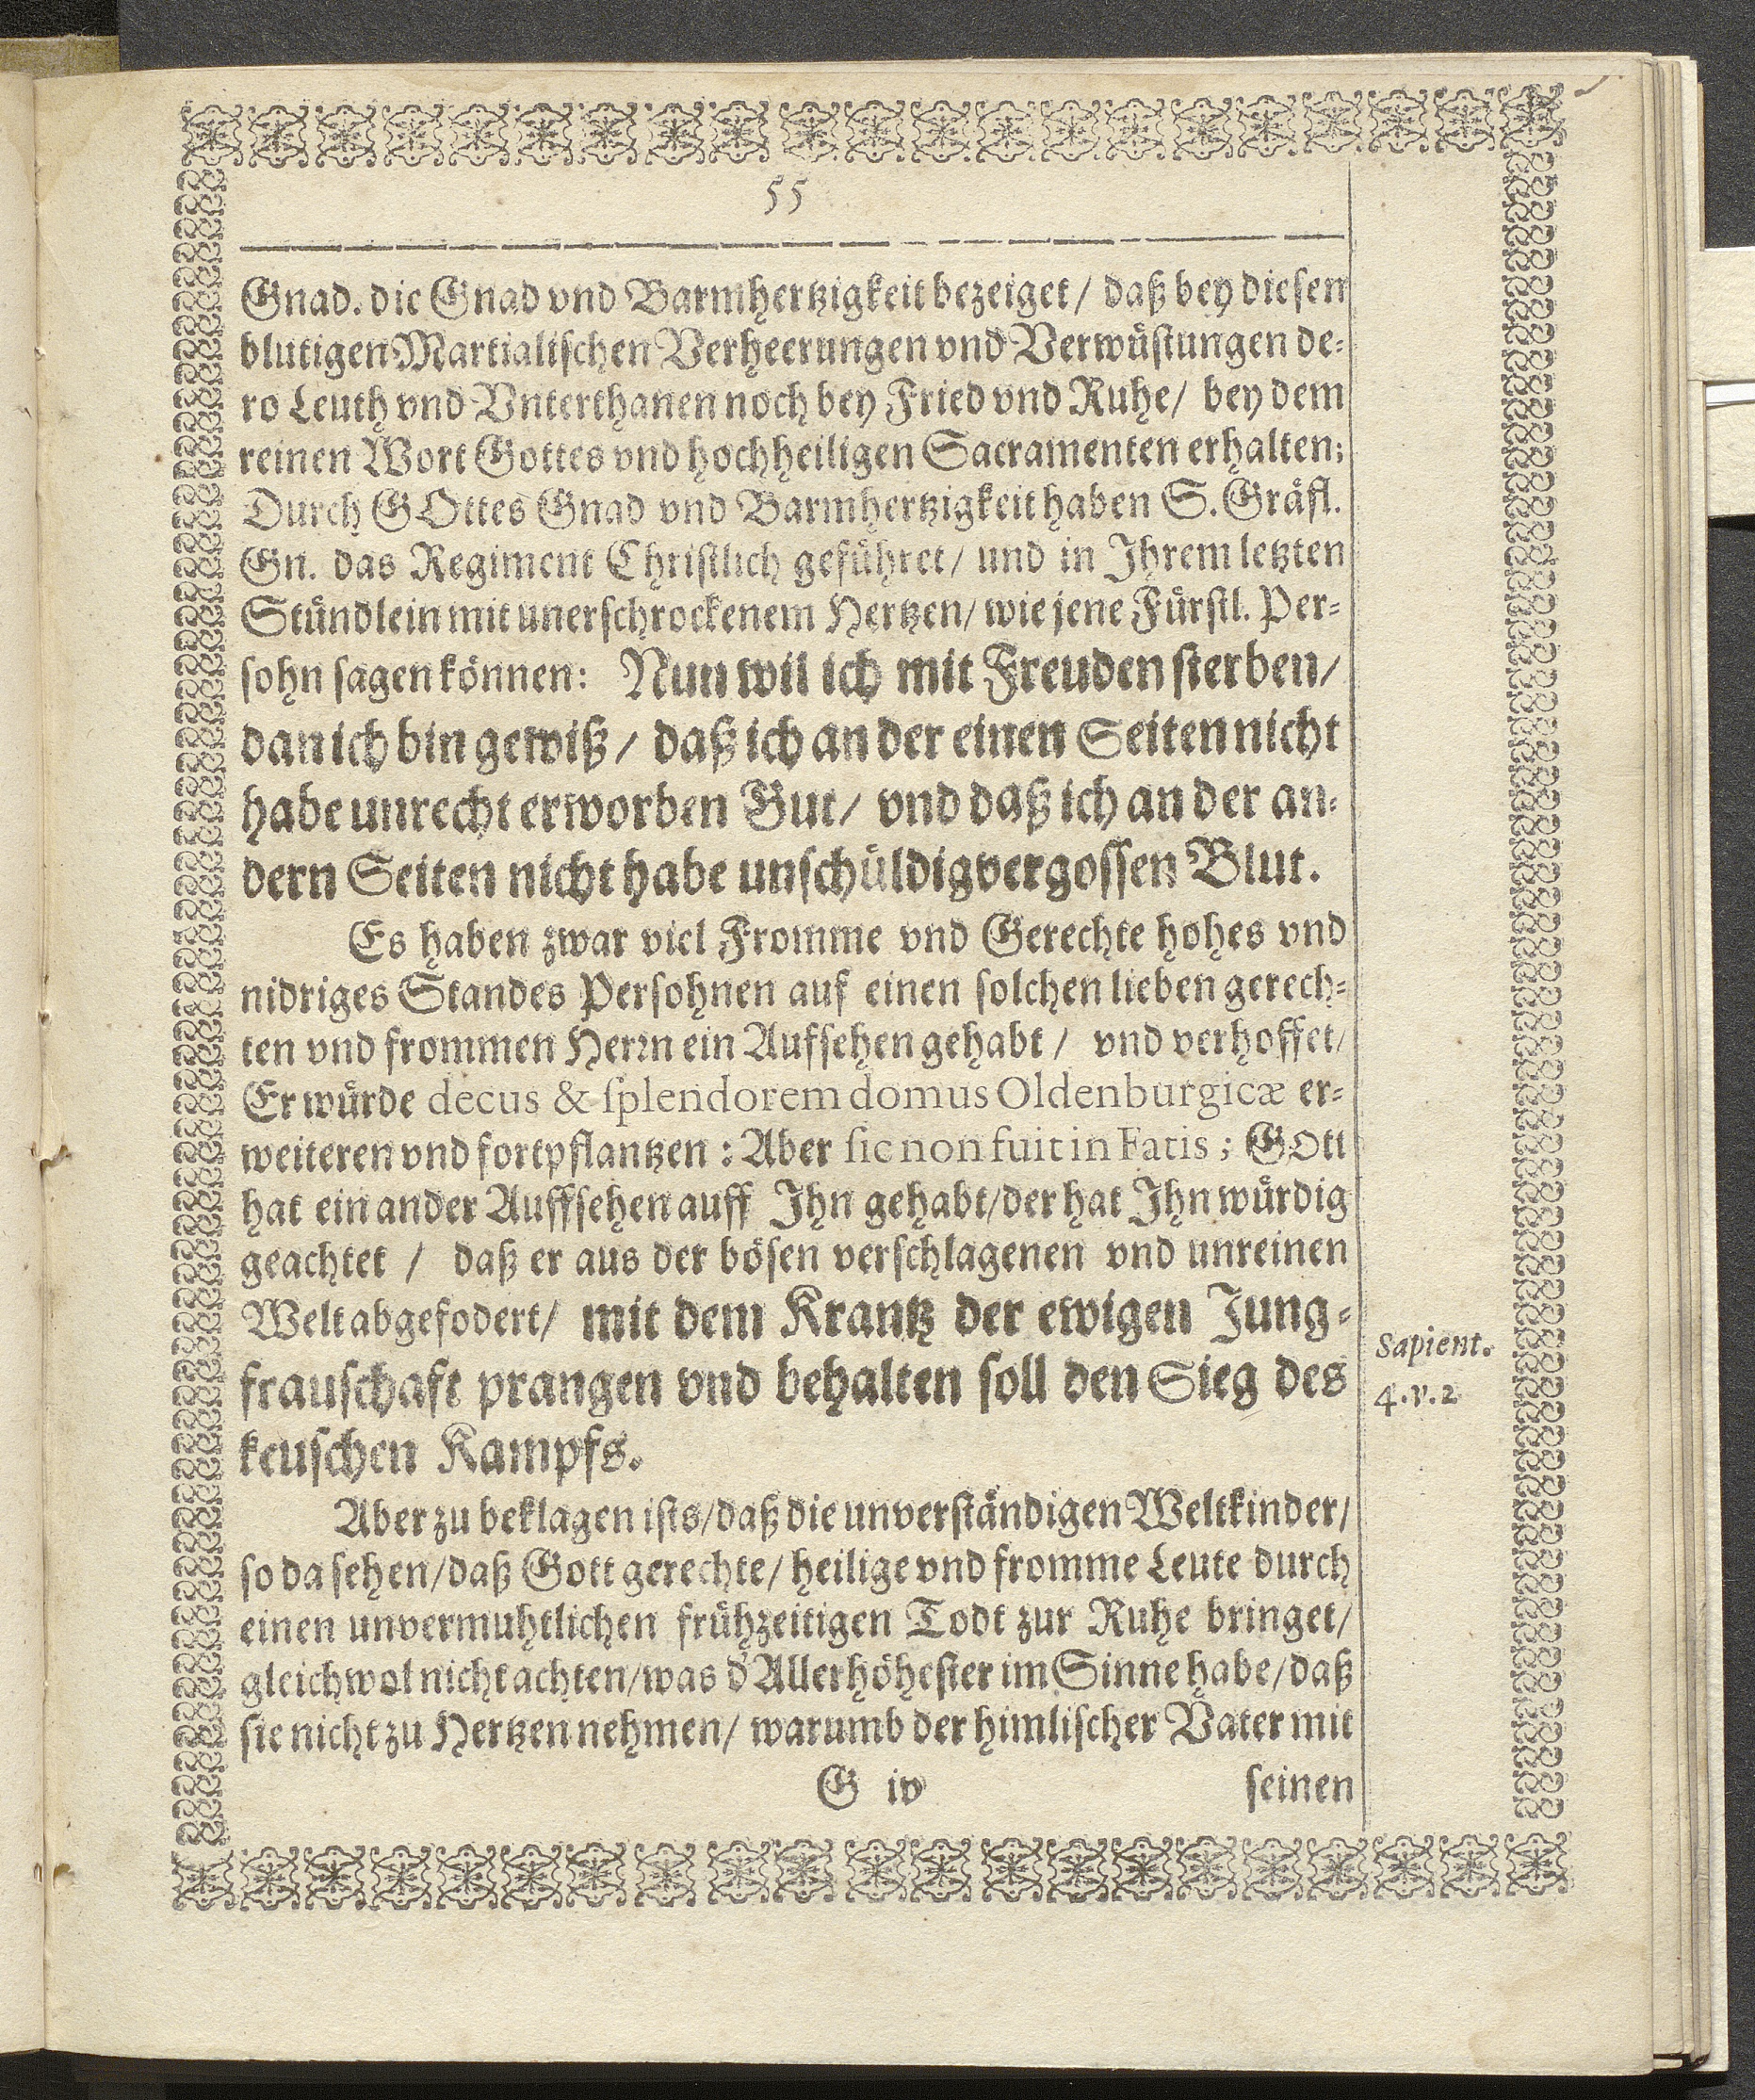 55
Gnad. die Gnad vnd Barmhertzigkeit bezeiget/ daß bey diesen
blutigen Martialischen Verheerungen vnd Verwüstungen de-
ro Leuth vnd Vnterthanen noch bey Fried vnd Ruhe/ bey dem
reinen Wort Gottes vnd hochheiligen Sacramenten erhalten;
Durch GOttes Gnad vnd Barmhertzigkeit haben S. Gräfl.
Gn. das Regiment Christlich geführet/ und in Ihrem letzten
Stündlein mit unerschrockenem Hertzen/ wie jene Fürstl. Per-
sohn sagen können: Nun wil ich mit Freuden sterben/
dan ich bin gewiß/ daß ich an der einen Seiten nicht
habe unrecht erworben Gut/ vnd daß ich an der an-
dern Seiten nicht habe unschüldig vergossen Blut.
Es haben zwar viel Fromme vnd Gerechte hohes vnd
nidriges Standes Persohnen auf einen solchen lieben gerech-
ten vnd frommen Herrn ein Aufsehen gehabt/ vnd verhoffet/
Er würde decus & splendorem domus Oldenburgicæ er-
weiteren vnd fortpflantzen: Aber sic non fuit in Fatis; GOtt
hat ein ander Auffsehen auff Ihn gehabt/ der hat Ihn würdig
geachtet/ daß er aus der bösen verschlagenen vnd unreinen
Welt abgefodert/ mit dem Krantz der ewigen Jung-
frauschaft prangen vnd behalten soll den Sieg des
keuschen Kampfs.
Sapient.
4. v. 2
Aber zu beklagen ists/ daß die unverständigen Weltkinder/
so da sehen/ daß Gott gerechte/ heilige vnd fromme Leute durch
einen unvermuhtlichen frühzeitigen Todt zur Ruhe bringet/
gleichwol nicht achten/ was d' Allerhöhester im Sinne habe/ daß
sie nicht zu Hertzen nehmen/ warumb der himlischer Vater mit
G iv seinen